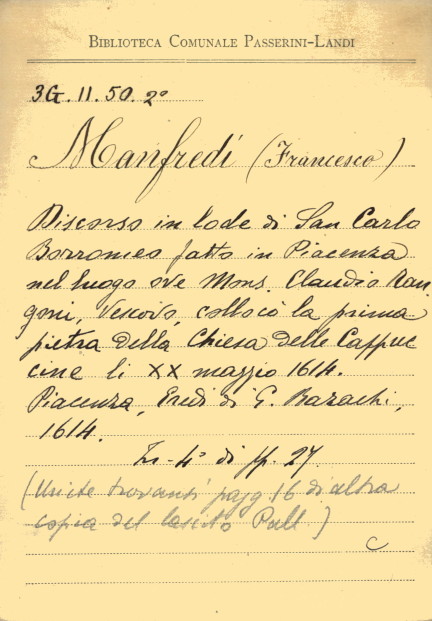 BIBLIOTECA COMUNALE PASSERINI-LANDI
3G. II. 50. 2º
Manfredi (Francesco)
Discorso in lode di San Carlo
Borromeo fatto in Piacenza
nel luogo ove Mons. Claudio Ran
goni, Vescovo, collocò la prima
pietra della Chiesa delle Cappuc
cine li XX maggio 1614.
Piacenza, Eredi di G. Bazachi,
1614.
In-4º di pp. 27.
(Unite trovansi pagg. 16 di altra
copia del lascito Pall.)
C